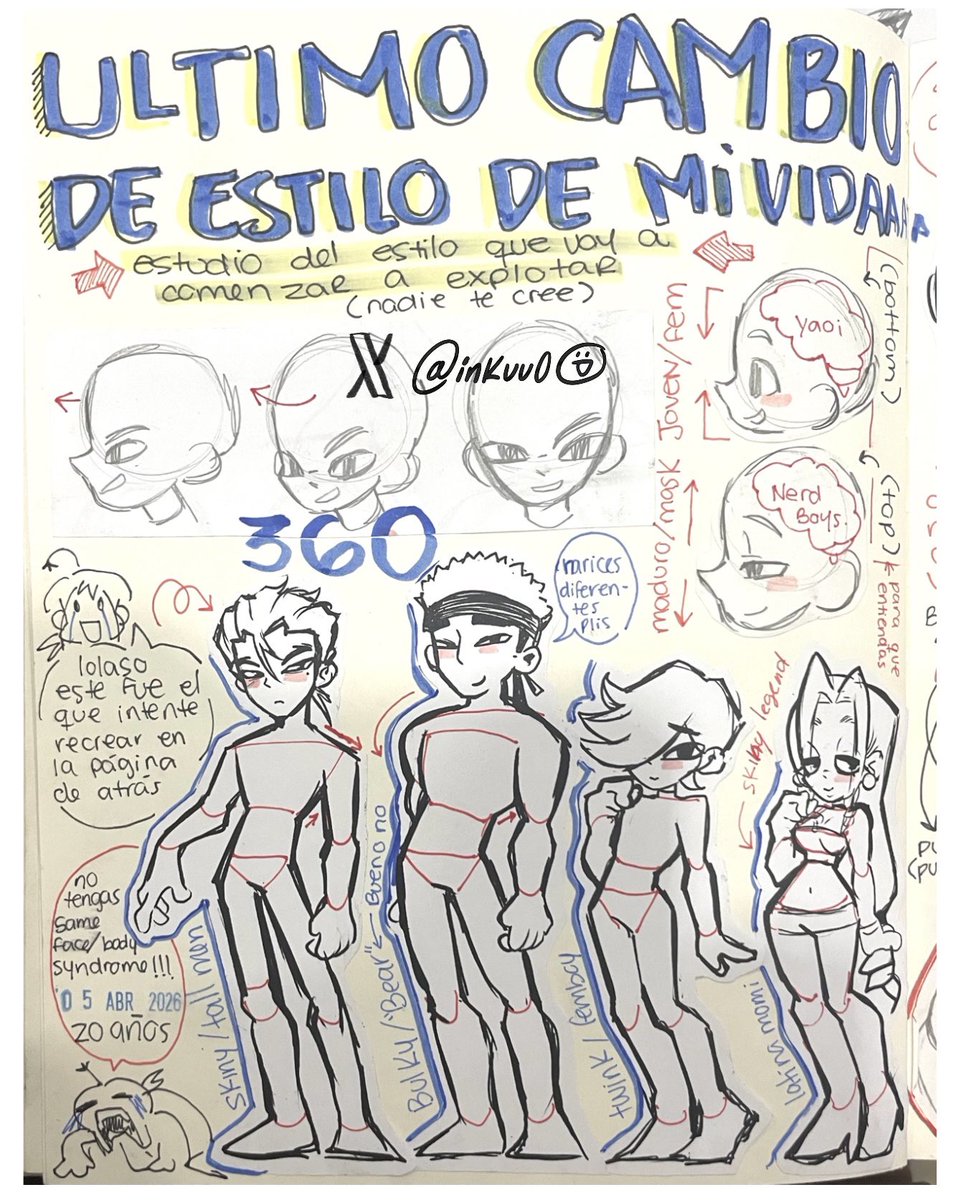 ULTIMO CAMBIO
DE ESTILO DE MiVIDAAAA
estudio del estilo que voy a
comenzar a explotar
(nadie te cree)
X @inkuu0
360
Joven/fem
maduro/mask
Yaoi
(bottom)
Nerd
Boys
(top)
* para que
entiendas
narices
diferen-
tes
plis
lolaso
este fue el
que intente
recrear en
la página
de atrás
no
tengas
same
face/body
syndrome!!!
05 ABR 2026
20 años
skiny/tall men
Bulky/"Bear"
Bueno no
twink/femboy
skiny legend
latina mami